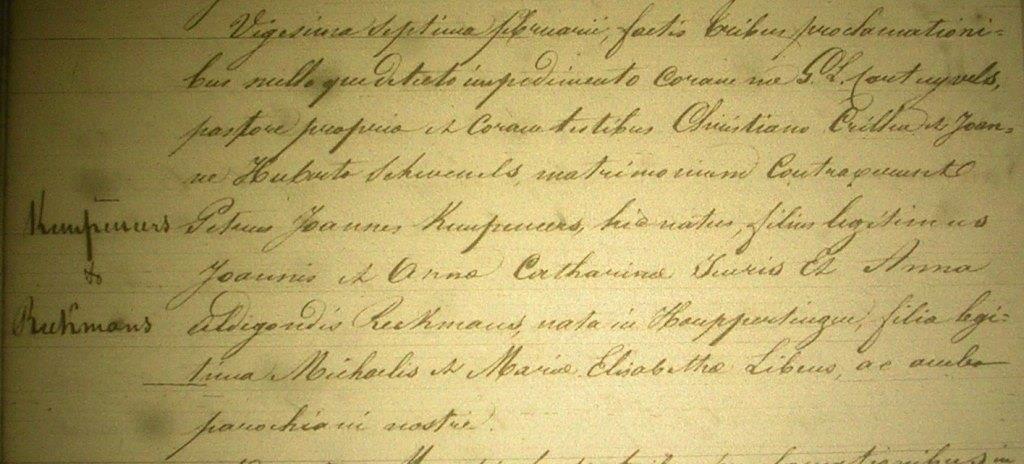 Vigesima Septima februarii, factis tribus proclamationi-
bus nulloque detecto impedimento coram me G. L. Cartuyvels,
pastore proprio et coram testibus Christiano Crillen et Joan-
ne Huberto Schreuels, matrimonium Contraxerunt
Kempeneers Petrus Joannes Kempeneers, hic natus, filius legitimus
&
Joannis et Anna Catharina Theuris Et Anna
Reekmans Aldigondis Reekmans, nata in Houppertingen, filia legi-
tima Michaelis et Maria Elisabetha Libens, ac ambo
parochiani nostri.